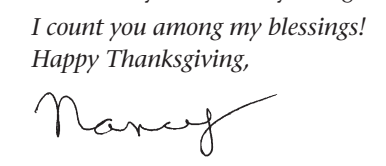 I count you among my blessings!
Happy Thanksgiving,
Nancy